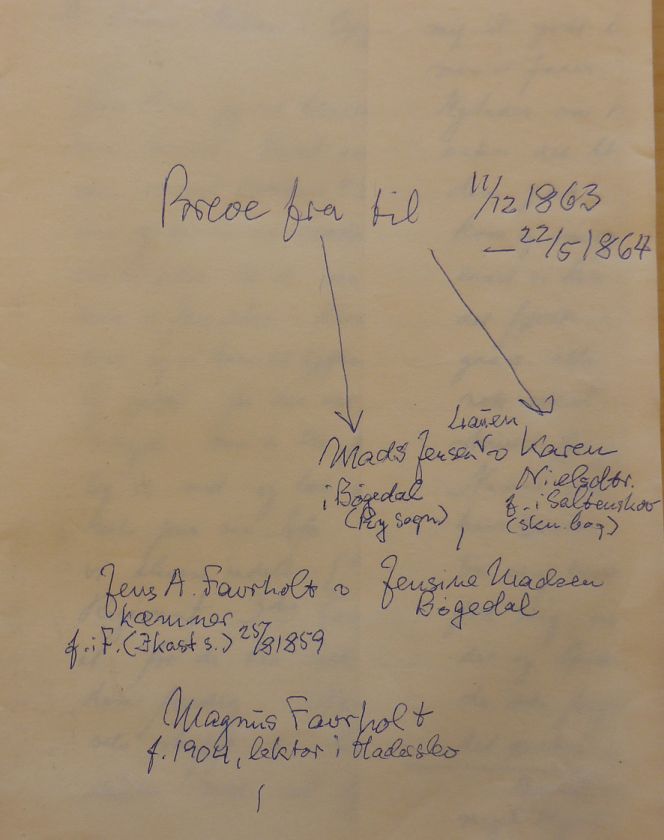 Breve fra til 11/12 1863
— 22/5 1864
Mads Jensen o Karen
i Bøgedal Nielsdtr.
(Ry sogn) f. i Saltenskov
Jens A. Favrholt o Jensine Madsen
kæmner Bøgedal
f. i F. (Ikast s.) 25/8 1859
Magnus Favrholt
f. 1904, lektor i Haderslev